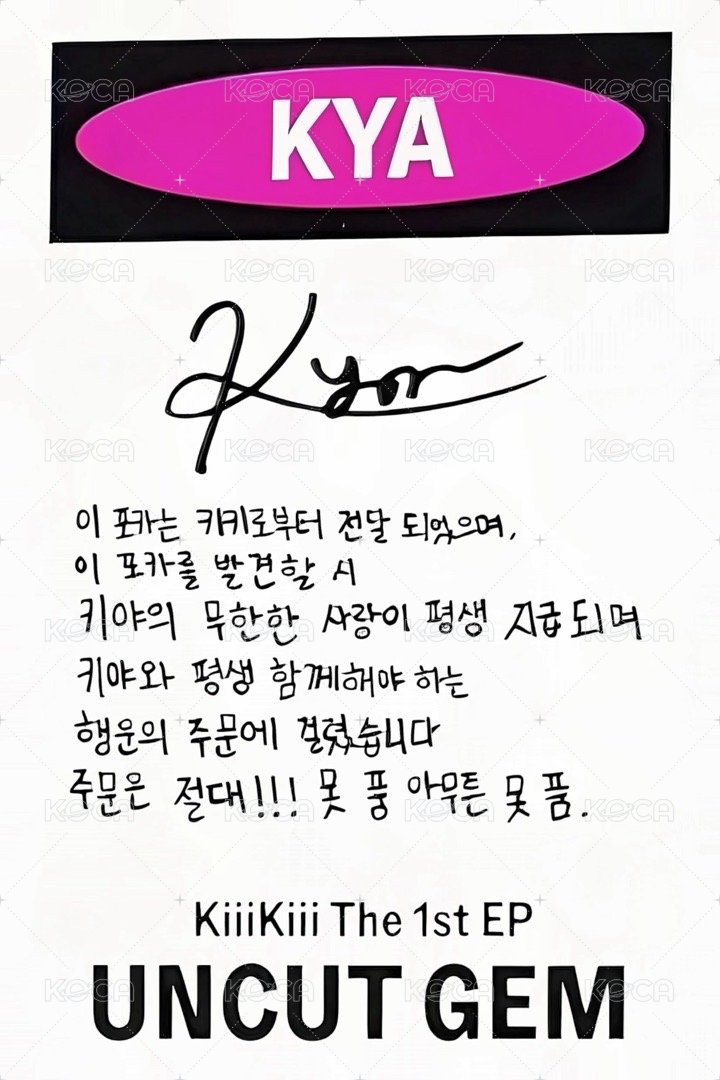 KYA
Kya
이 포카는 키키로부터 전달 되었으며,
이 포카를 발견할 시
키야의 무한한 사랑이 평생 지급되며
키야와 평생 함께해야 하는
행운의 주문에 걸렸습니다
주문은 절대!!! 못 풍 아무튼 못 품.
KiiiKiii The 1st EP
UNCUT GEM
KOCA